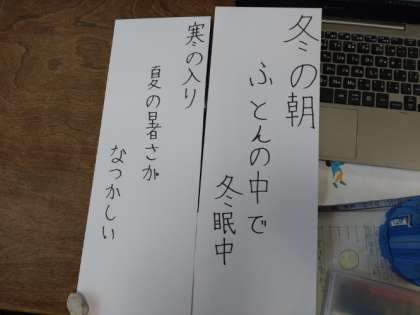 冬の朝
ふとんの中で
冬眠中
寒の入り
夏の暑さが
なつかしい